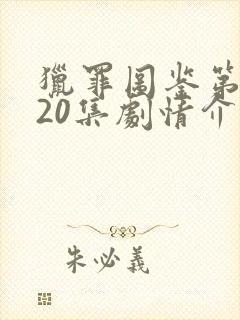 獵罪图鉴第
20集劇情介
朱必義